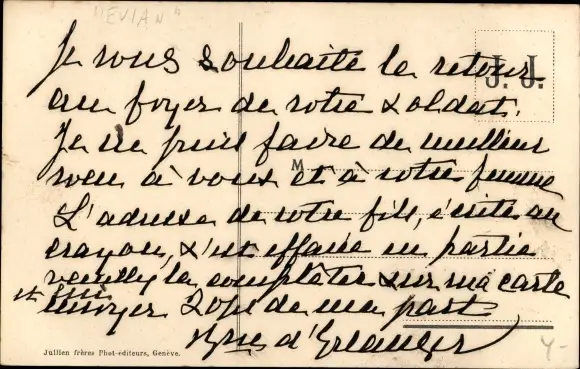 "EVIAN"
Je vous souhaite le retour
au foyer de votre soldat.
Je ne puis faire de meilleur
voeu à vous et à votre femme
L'adresse de votre fils, écrite au
crayon, s'est effacée en partie
veuillez la complèter sur ma carte
et lui
envoyer 20f de ma part
d'Erlanger
J. J.
M
Jullien frères Phot-éditeurs, Genève.